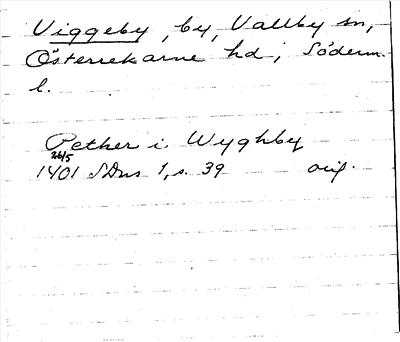 Viggeby, by, Vallby sn,
Österrekarne hd, Söderm.
l.
Pether i Wyghby
26/5
1401 SDns 1, s. 39 orig.